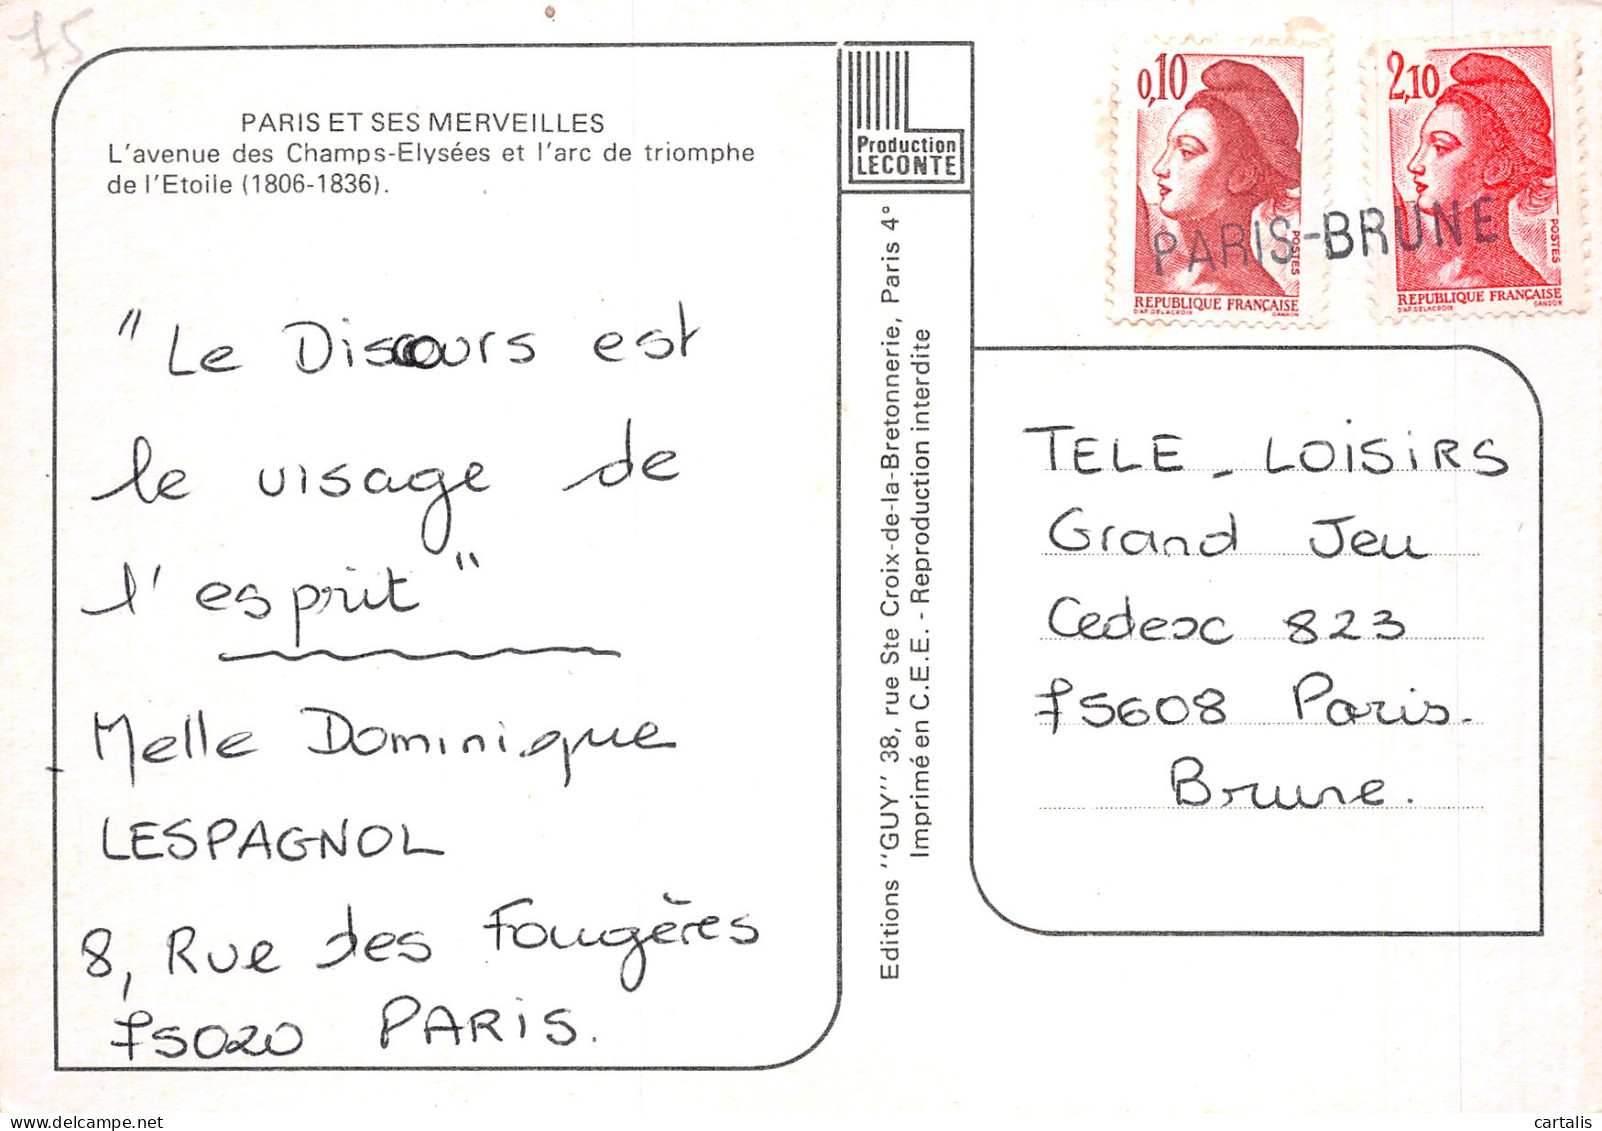 75
PARIS ET SES MERVEILLES
L'avenue des Champs-Elysées et l'arc de triomphe
de l'Etoile (1806-1836).
"Le Discours est
le visage de
l'esprit"
Melle Dominique
LESPAGNOL
8, Rue des Fougères
75020 PARIS.
Production
LECONTE
Editions ''GUY'' 38, rue Ste Croix-de-la-Bretonnerie, Paris 4°
Imprimé en C.E.E. - Reproduction interdite
0,10
POSTES
REPUBLIQUE FRANÇAISE
D'AP. DELACROIX GANDON
2,10
POSTES
REPUBLIQUE FRANÇAISE
D'AP. DELACROIX GANDON
PARIS-BRUNE
TELE - LOISIRS
Grand Jeu
Cedesc 823
75608 Paris.
Brune.
delcampe.net
cartalis